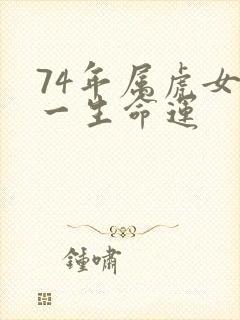 74年属虎女
一生命运
鍾啸